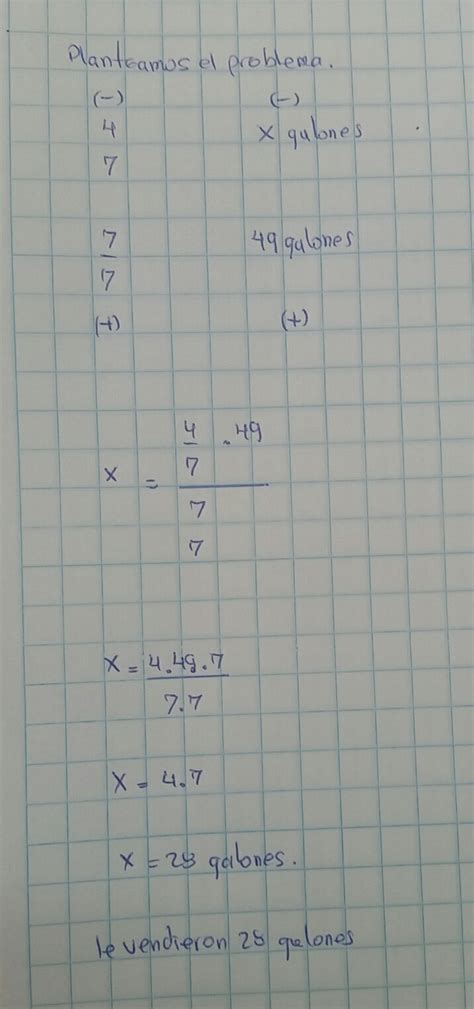 Planteamos el problema.
(-) (-)
4 x galones
7
7 49 galones
7
(+) (+)
4 . 49
x = 7
7
7
x = 4.49.7
7.7
x = 4.7
x = 28 galones.
le vendieron 28 galones